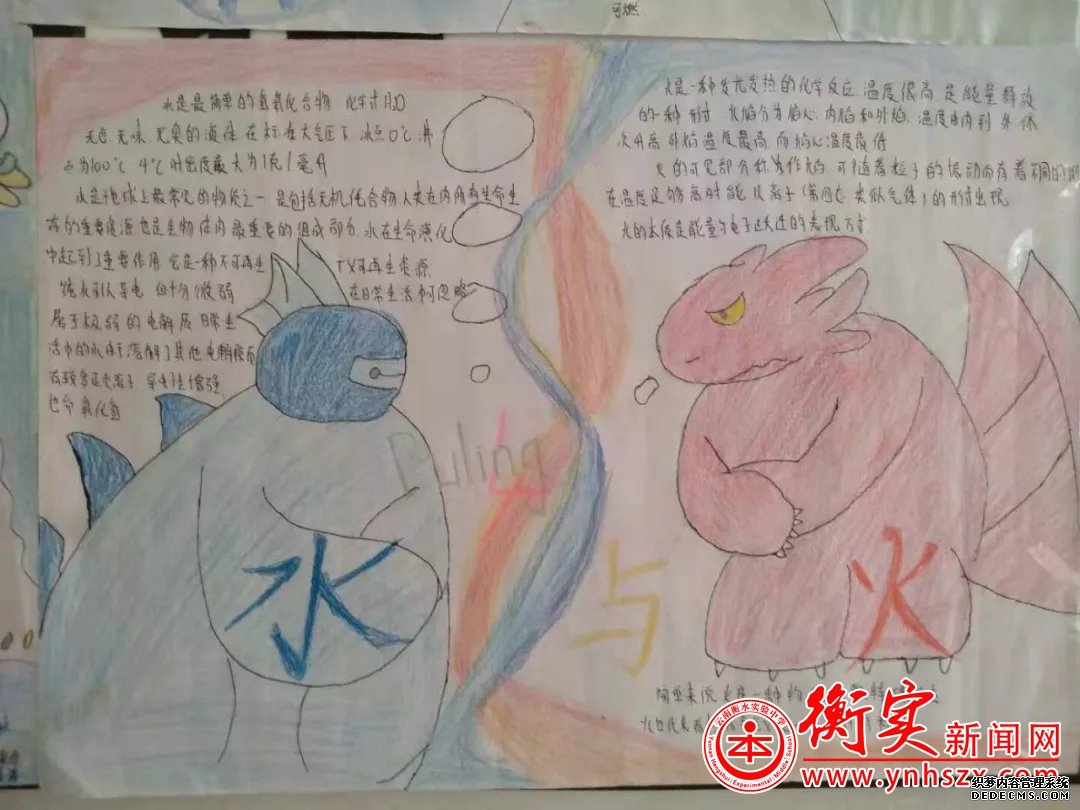 可燃
水是最简单的氢氧化合物 化学式H₂O
无色 无味 无臭的液体 在标准大气压下 冰点0℃ 沸
点为100℃ 4℃时密度最大为1克/毫升
水是地球上最常见的物质之一 是包括无机化合物 人类在内所有生命生
存的重要资源 也是生物体内最重要的组成部分 水在生命演化
中起到了重要作用 它是一种不可再生
可再生资源
纯水可以导电 但十分微弱
在日常生活中可忽略
属于极弱的电解质 日常生
活中的水由于溶解了其他电解质而
有较多正负离子 导电性增强
也命 氧化氢
火是一种发光发热的化学反应 温度很高 是能量释放
的一种形式 火焰分为焰心 内焰和外焰 温度由内到外依
次升高 外焰温度最高 而焰心温度最低
火的可见部分称作火焰 可随着粒子的振动而有着不同的
在温度足够高时能以离子(第四态 类似气体)的形式出现
火的本质是能量与电子跃迁的表现方式
Puling
水
与
火
简单来说 火是一种物
火也代表着
云南衡水实验中学
Yunnan Hengshui Experimental Middle School
本
衡实新闻网
www.ynhszx.com
织梦内容管理系统
DEDECMS.COM